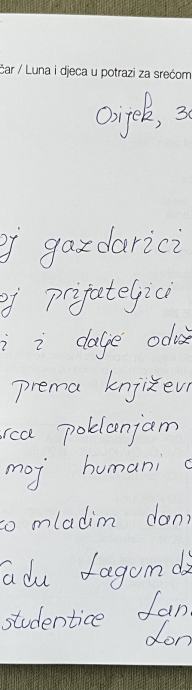 čar / Luna i djeca u potrazi za srećom
Osijek, 30
oj gazdarici
oj prijateljici
i i dalje
prema književn
srca poklanjam
moj humani
ko mladim
adu
studentice